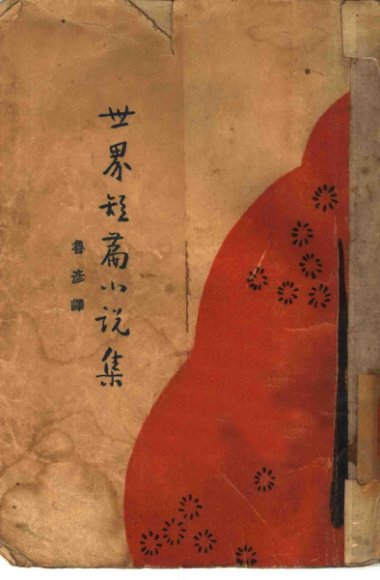 世界短篇小说集
魯彥譯